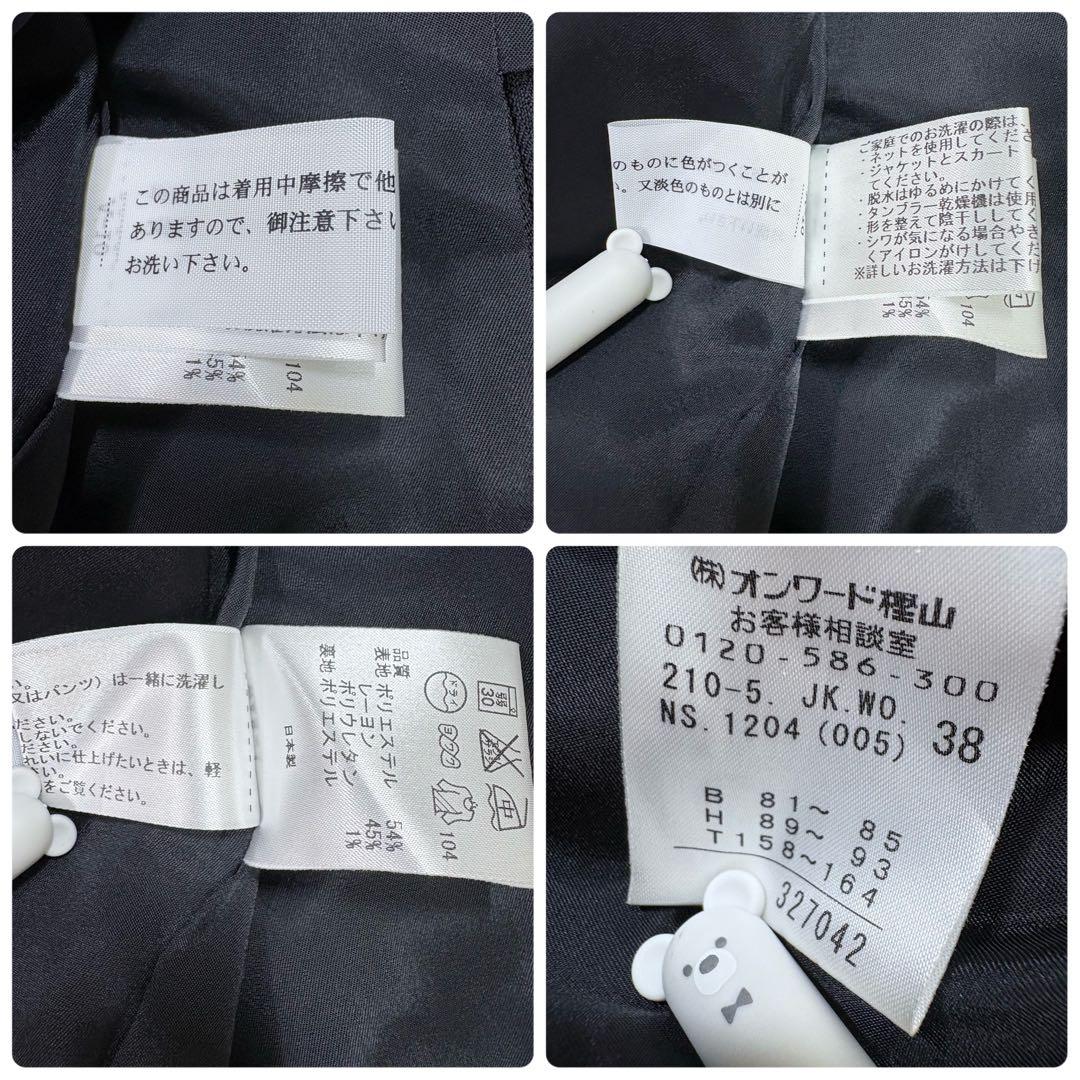 この商品は着用中摩擦で他
ありますので、御注意下さい
お洗い下さい。
104
54%
45%
1%
のものに色がつくことが
い。又淡色のものとは別に
ご家庭でのお洗濯の際は、
・ネットを使用してくださ
・ジャケットとスカート
てください。
・脱水はゆるめにかけてく
・タンブラー乾燥機は使用
・形を整えて陰干ししてく
・シワが気になる場合やき
くアイロンがけしてくだ
※詳しいお洗濯方法は下げ
104
54%
45%
1%
い。
又はパンツ)は一緒に洗濯し
ださい。
しないでください。
ださい。
れいに仕上げたいときは、軽
さい。
をご覧ください。
品質
表地 ポリエステル 54%
レーヨン 45%
ポリウレタン 1%
裏地 ポリエステル
日本製
ドライ
弱
30
ヨワク
エンソサラシ
中
104
(株)オンワード樫山
お客様相談室
0120-586-300
210-5. JK.WO.
NS.1204 (005) 38
B 81~ 85
H 89~ 93
T158~164
327042